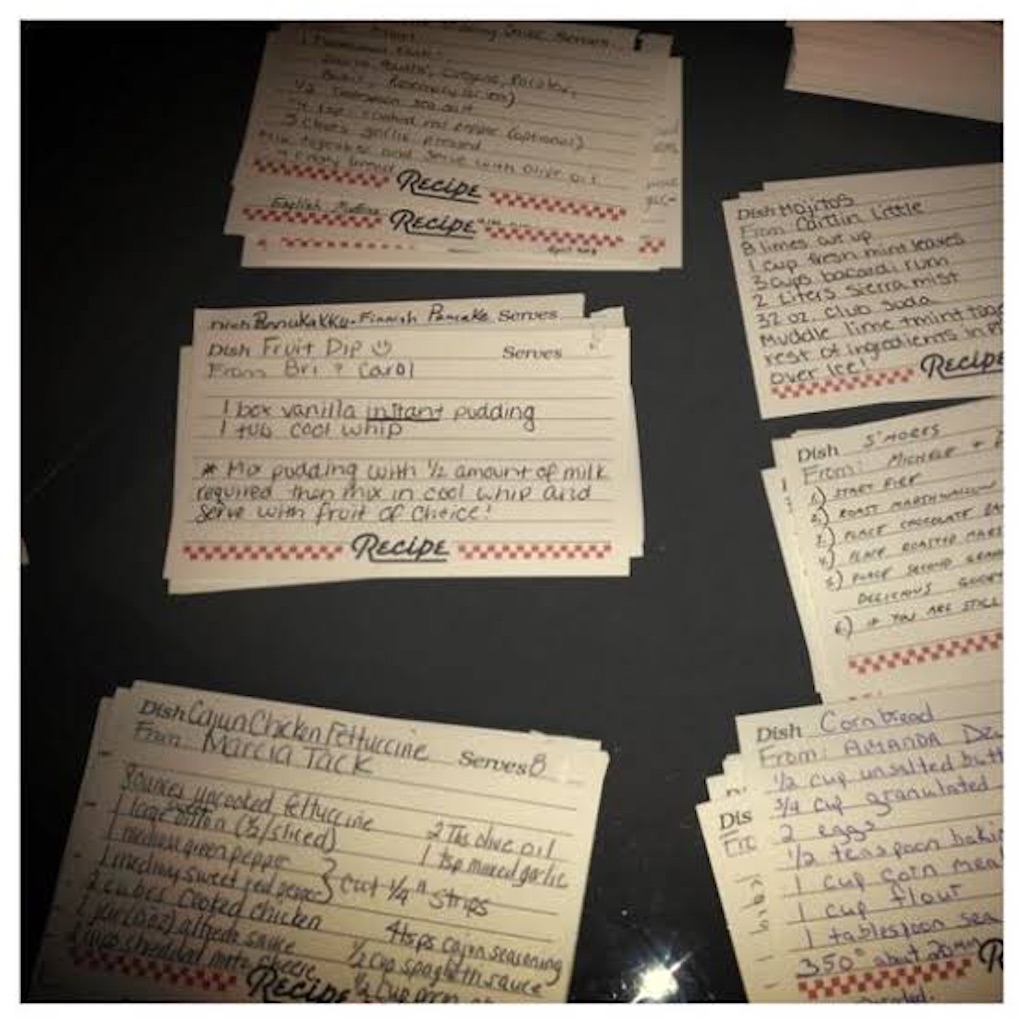 1
Oregano, Parsley,
Basil, Rosemary
1/2 Teaspoon sea salt
1/4 tsp. crushed red pepper (optional)
3 cloves garlic pressed
Mix together and serve with olive oil
Recipe
English Muffins
Recipe
Dish Mojitos
From Caitlin Little
8 limes cut up
1 cup fresh mint leaves
3 cups bacardi rum
2 Liters Sierra mist
32 oz. Club Soda
Muddle lime + mint
rest of ingredients in
over ice!
Recipe
Dish Pannukakku-Finnish Pancake Serves
Dish Fruit Dip ☺ Serves
From Bri & Carol
1 box vanilla instant pudding
1 tub cool whip
* Mix pudding with 1/2 amount of milk
required then mix in cool whip and
serve with fruit of choice!
Recipe
Dish S'MORES
From: MICHELE +
1.) START FIRE
2.) ROAST MARSHMALLOW
3.) PLACE CHOCOLATE
4.) PLACE ROASTED
5.) PLACE SECOND
DELICIOUS
6.) IF YOU ARE STILL
Dish Cajun Chicken Fettuccine Serves 8
From: Marcia Tack
8 ounces uncooked fettuccine
1 large onion (1/2/sliced)
1 medium green pepper
1 medium sweet red pepper } Cut 1/4" strips
2 cubes cooked chicken
alfredo sauce
cheddar cheese
2 Tbs olive oil
1 tsp minced garlic
4 tsps cajun seasoning
1/2 cup spaghetti sauce
1/2 cup
Recipe
Dish Cornbread
From: AMANDA
1/2 cup unsalted
3/4 cup granulated
2 eggs
1/2 teaspoon
1 cup corn
1 cup flour
1 tablespoon
350° about 20 min
Dis